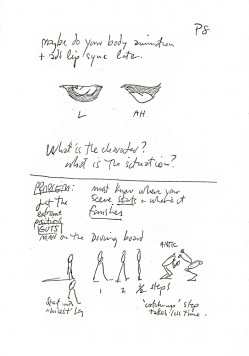 P8
maybe do your body animation
+ add lip sync later.
L AH
What is the character?
what is the situation?
PROBLEM: must know where your
scene starts + where it
finishes
get the
extreme
positions
GUTS
MAN on the Diving board
ANTIC
1 2 3 steps
'catch up' step
takes less time.